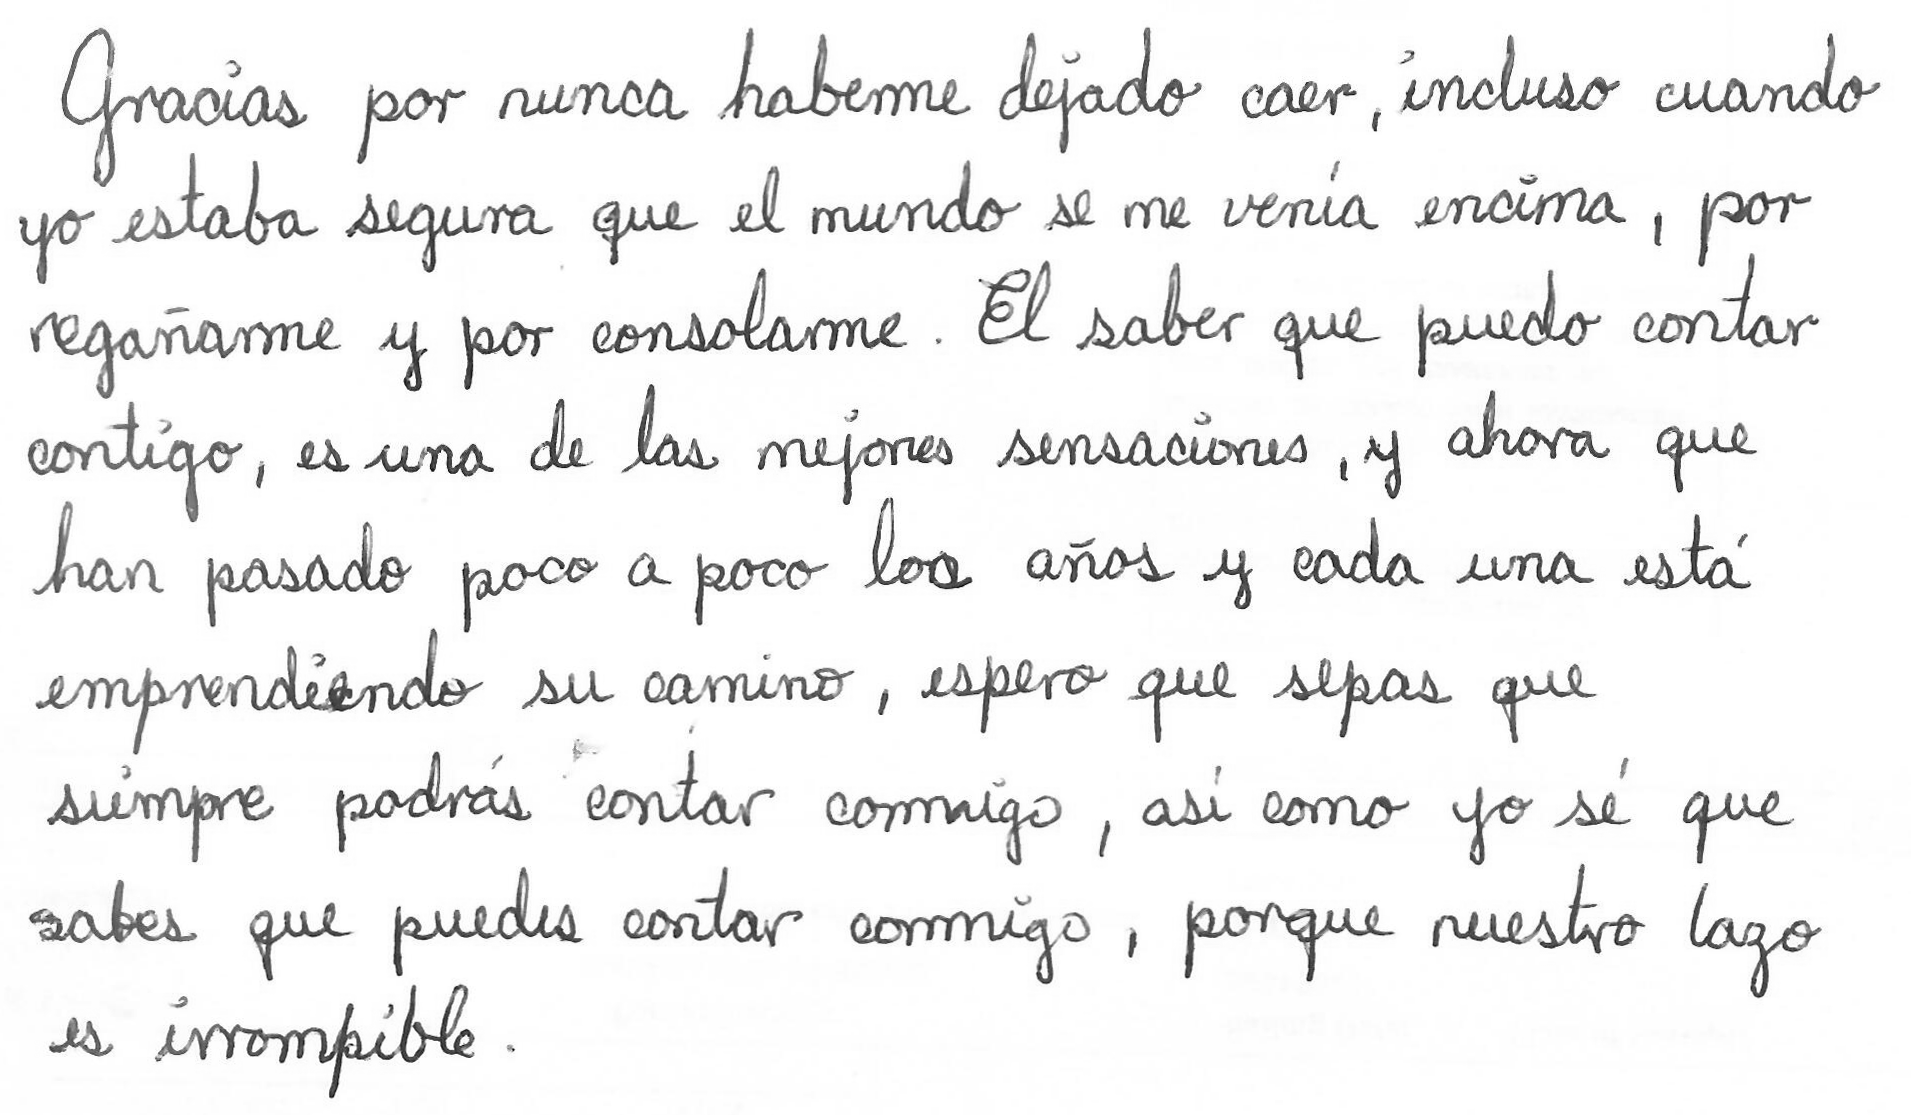 Gracias por nunca haberme dejado caer, incluso cuando
yo estaba segura que el mundo se me venía encima, por
regañarme y por consolarme. El saber que puedo contar
contigo, es una de las mejores sensaciones, y ahora que
han pasado poco a poco los años y cada una está
emprendiendo su camino, espero que sepas que
siempre podrás contar conmigo, así como yo sé que
sabes que puedes contar conmigo, porque nuestro lazo
es irrompible.